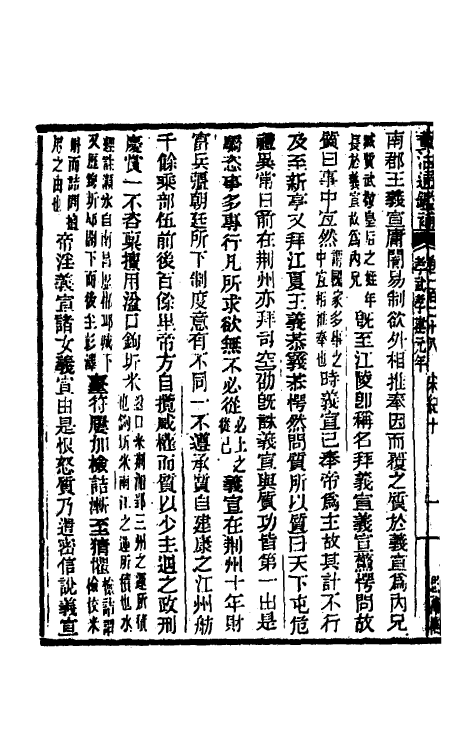 資治通鑑 卷一百二十八 宋紀十 孝武孝建元年
南郡王義宣庸闇易制欲外相推奉因而覆之質於義宣為內兄
臧質武敬皇后之姪年長於義宣故為內兄 既至江陵即稱名拜義宣義宣驚愕問故
質曰事中宜然 謂國家多事之中宜相推奉也 時義宣已奉帝為主故其計不行
及至新亭又拜江夏王義恭義恭愕然問質所以質曰天下屯危
禮異常日前在荆州亦拜司空劭既誅義宣與質功皆第一由是
驕恣事多專行凡所求欲無不必從 必上之從己 義宣在荆州十年財
富兵彊朝廷所下制度意有不同一不遵承質自建康之江州舫
千餘乘部伍前後百餘里帝方自攬威權而質以少主遇之政刑
慶賞一不咨稟擅用湓口鉤圻米 湓口米荆湘郢三州之運所積也鉤圻米南江之運所積也水
經註贛水自南昌歷椰邪城下又歷鉤圻邸閣下而後至彭澤 臺符屢加檢詰漸至猜懼 檢詰謂檢佼米
斛而詰問擅用之由也 帝淫義宣諸女義宣由是恨怒質乃遣密信說義宣